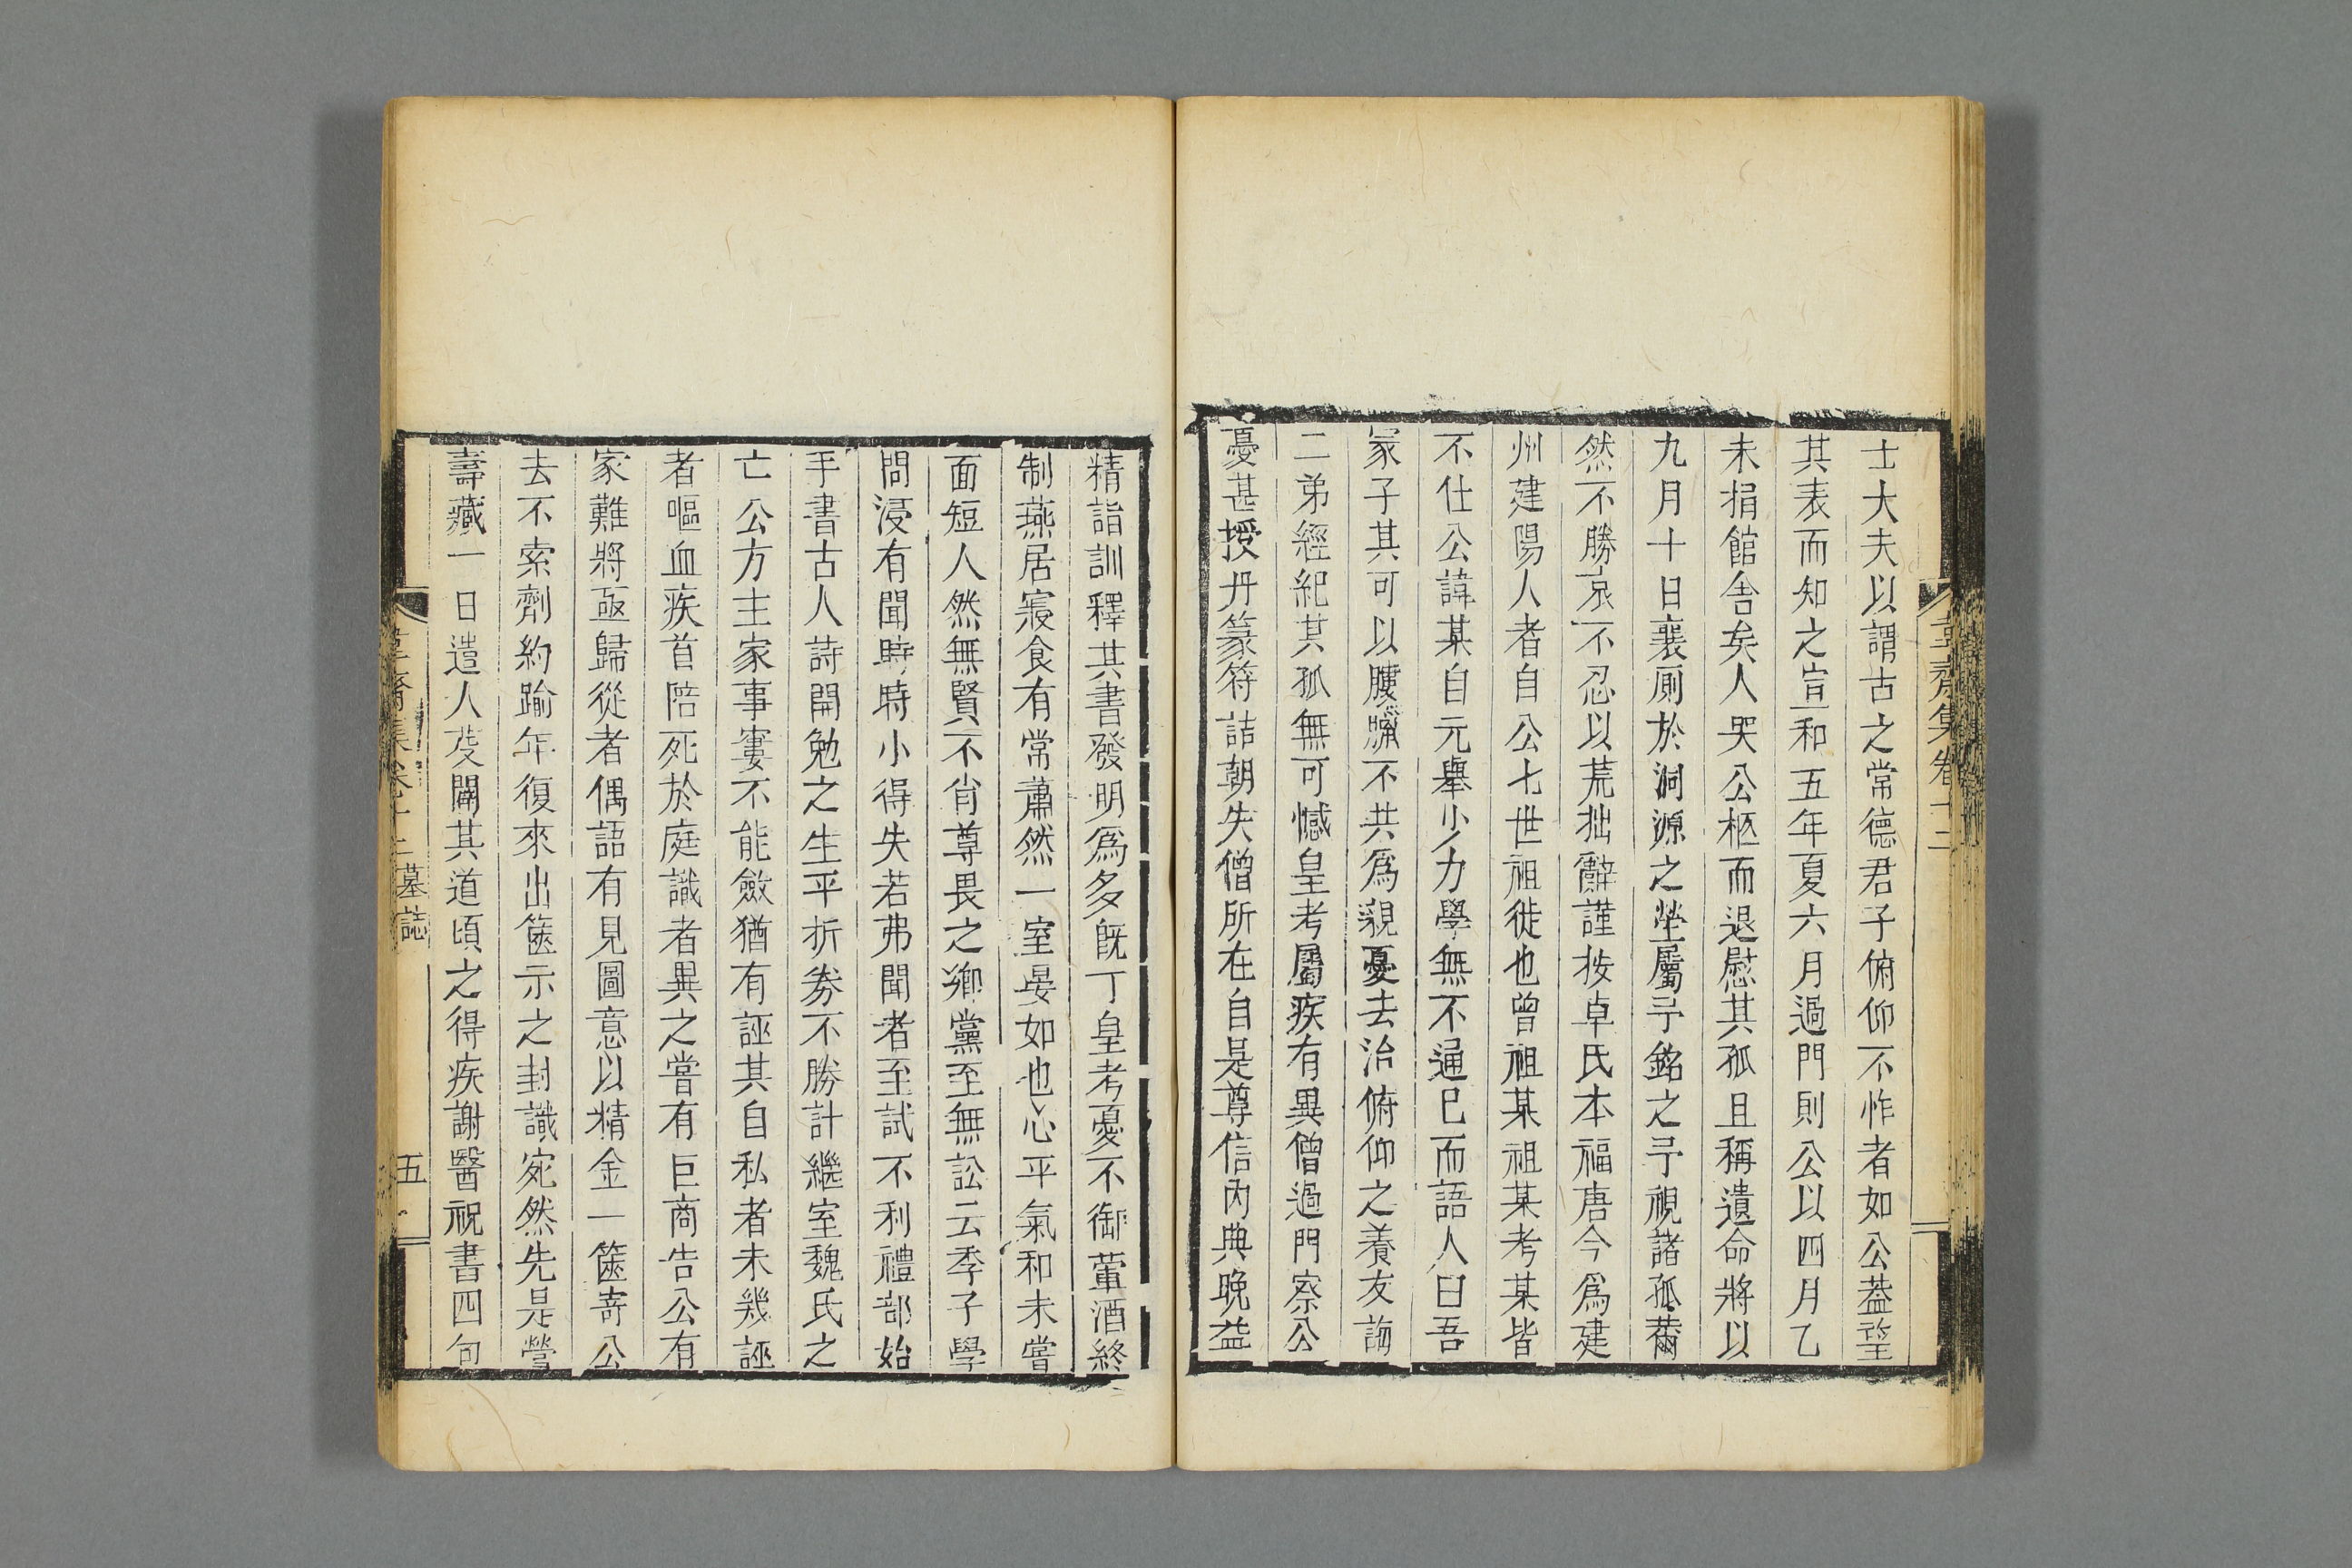 韋齋集卷十二
士大夫以謂古之常德君子俯仰不怍者如公葢望
其表而知之宣和五年夏六月過門則公以四月乙
未捐館舎矣人哭公柩而退慰其孤且稱遺命將以
九月十日襄厠於洞源之塋屬予銘之予視諸孤薾
然不勝哀不忍以荒拙辭謹按卓氏本福唐今爲建
州建陽人者自公七世祖徙也曾祖某祖某考某皆
不仕公諱某自元舉少力學無不通已而語人曰吾
冢子其可以臞不共爲親憂去治俯仰之養友誨
二弟經紀其孤無可憾皇考屬疾有異僧過門察公
憂甚授丹篆符詰朝失僧所在自是尊信内典晩益
精詣訓釋其書發明爲多旣丁皇考憂不御葷酒終
制燕居寢食有常蕭然一室晏如也心平氣和未嘗
面短人然無賢不肖尊畏之鄉黨至無訟云季子學
問浸有聞時時小得失若弗聞者至試不利禮部始
手書古人詩開勉之生平折券不勝計繼室魏氏之
亡公方主家事寠不能斂猶有誣其自私者未幾誣
者嘔血疾首陷死於庭識者異之嘗有巨商告公有
家難將亟歸從者偶語有見圖意以精金一篋寄公
去不索劑約踰年復來出篋示之封識宛然先是營
壽藏一日遣人芟闢其道頃之得疾謝醫祝書四句
韋齋集卷十二 墓誌
五